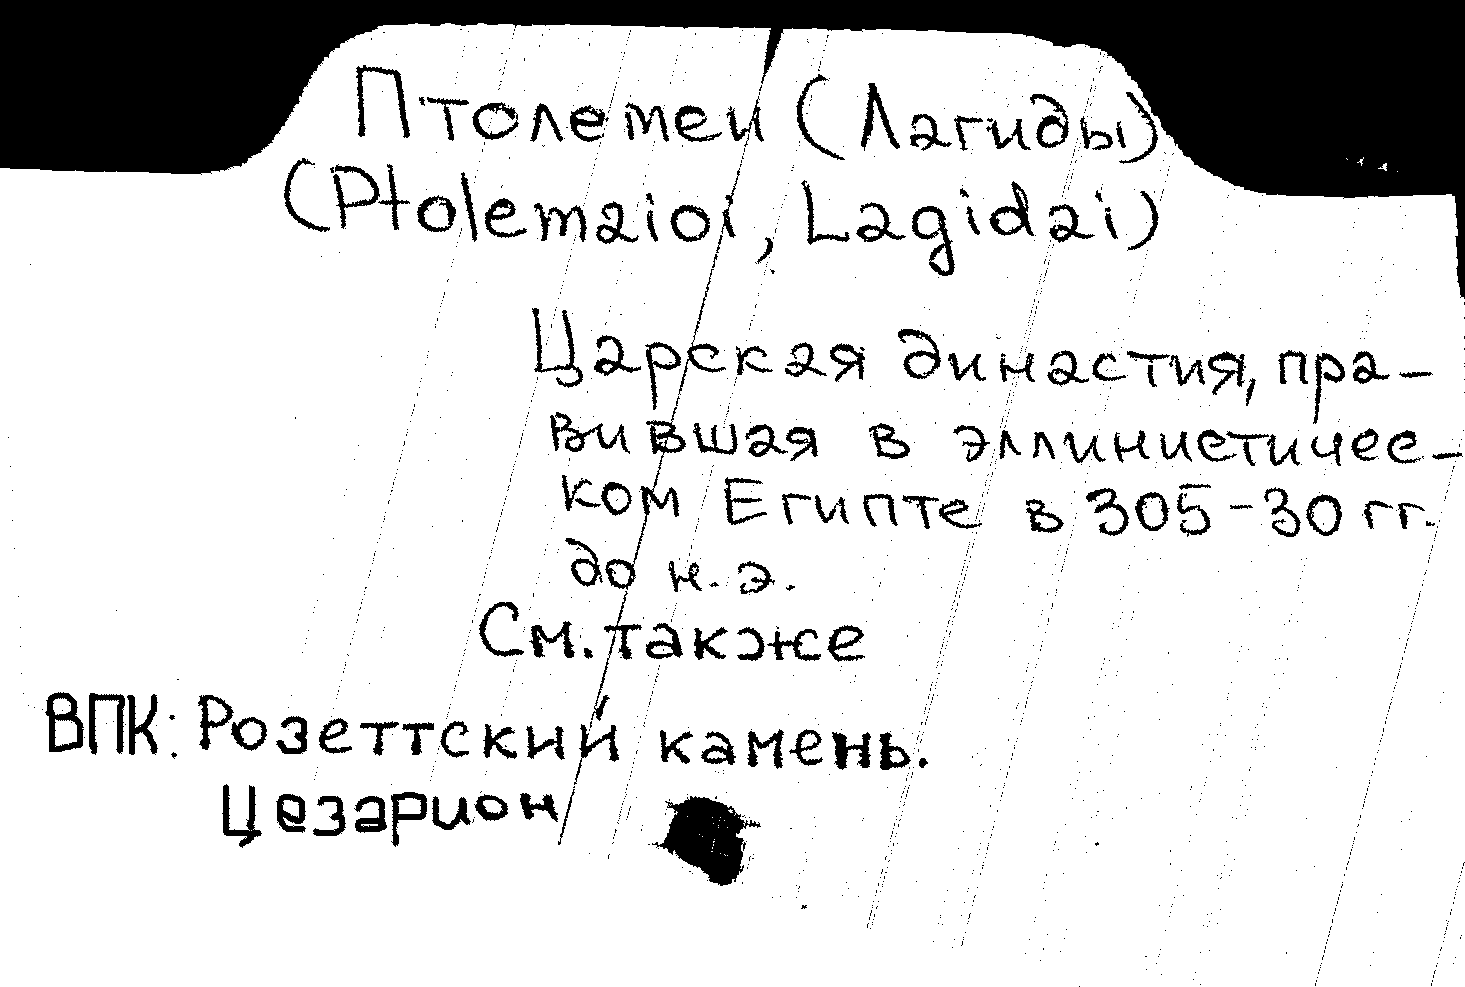 Птолемеи (Лагиды)
(Ptolemaioi, Lagidai)
Царская династия, пра-
вившая в эллинистичес-
ком Египте в 305-30 гг.
до н.э.
См. также
ВПК: Розеттский камень.
Цезарион